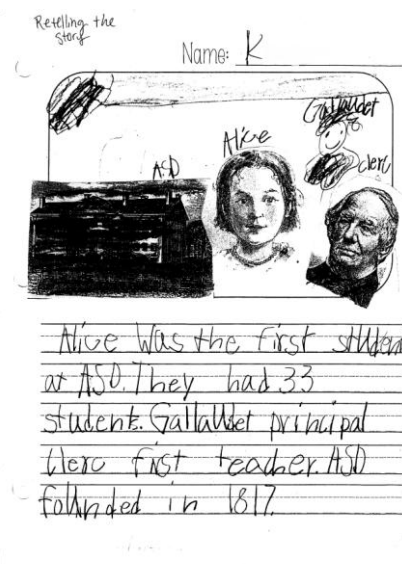 Retelling the
story
Name: K
Gallaudet
Alice
ASD
Clerc
Alice was the first student
at ASD. They had 33
students. Gallaudet principal
Clerc fist teacher. ASD
founded in 1817.